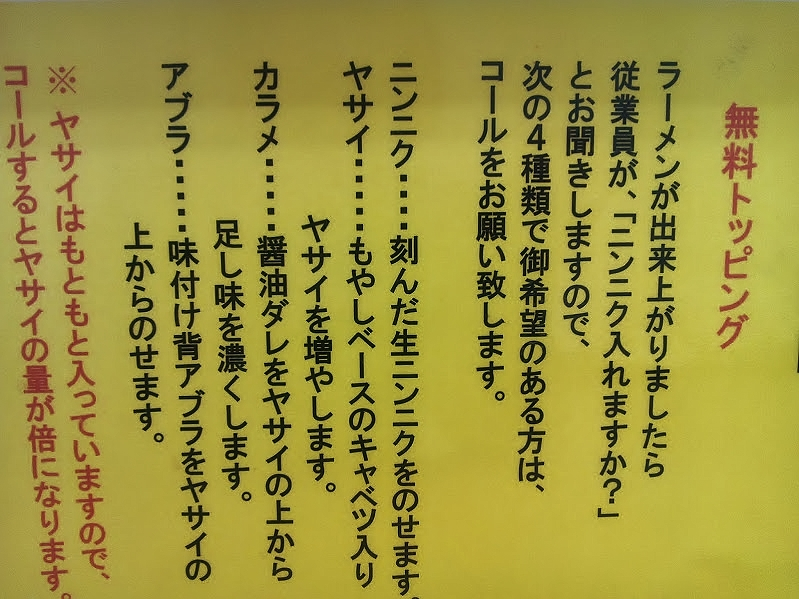 無料トッピング
ラーメンが出来上がりましたら
従業員が、「ニンニク入れますか？」
とお聞きしますので、
次の４種類で御希望のある方は、
コールをお願い致します。
ニンニク‥‥刻んだ生ニンニクをのせます。
ヤサイ‥‥‥もやしベースのキャベツ入り
ヤサイを増やします。
カラメ‥‥‥醤油ダレをヤサイの上から
足し味を濃くします。
アブラ‥‥‥味付け背アブラをヤサイの
上からのせます。
※ ヤサイはもともと入っていますので、
コールするとヤサイの量が倍になります。